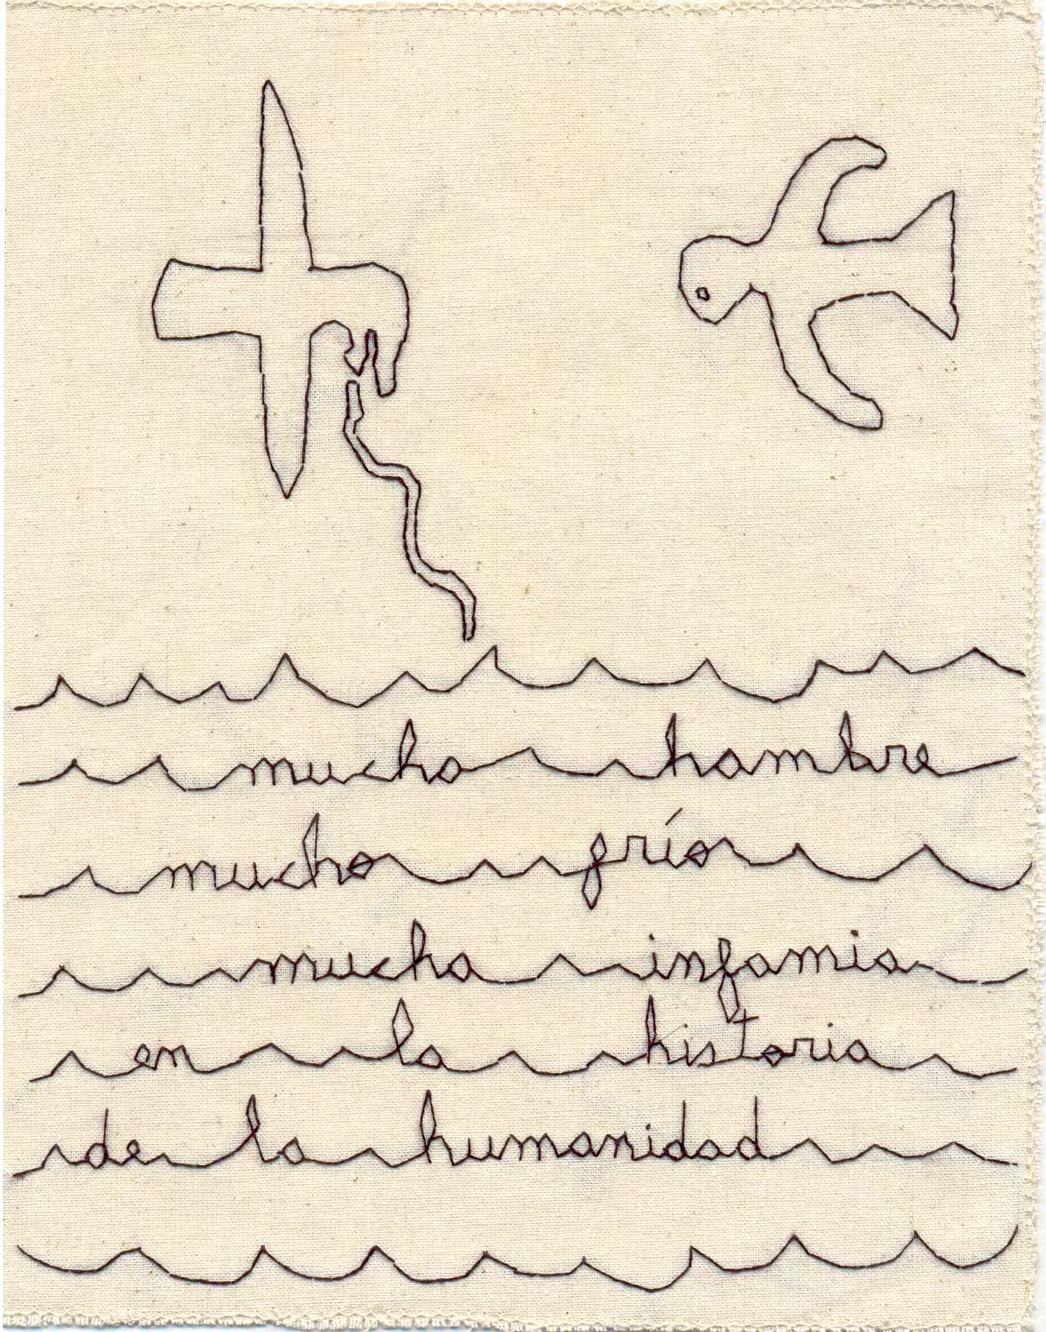 mucho hambre
mucho frío
mucha infamia
en la historia
de la humanidad